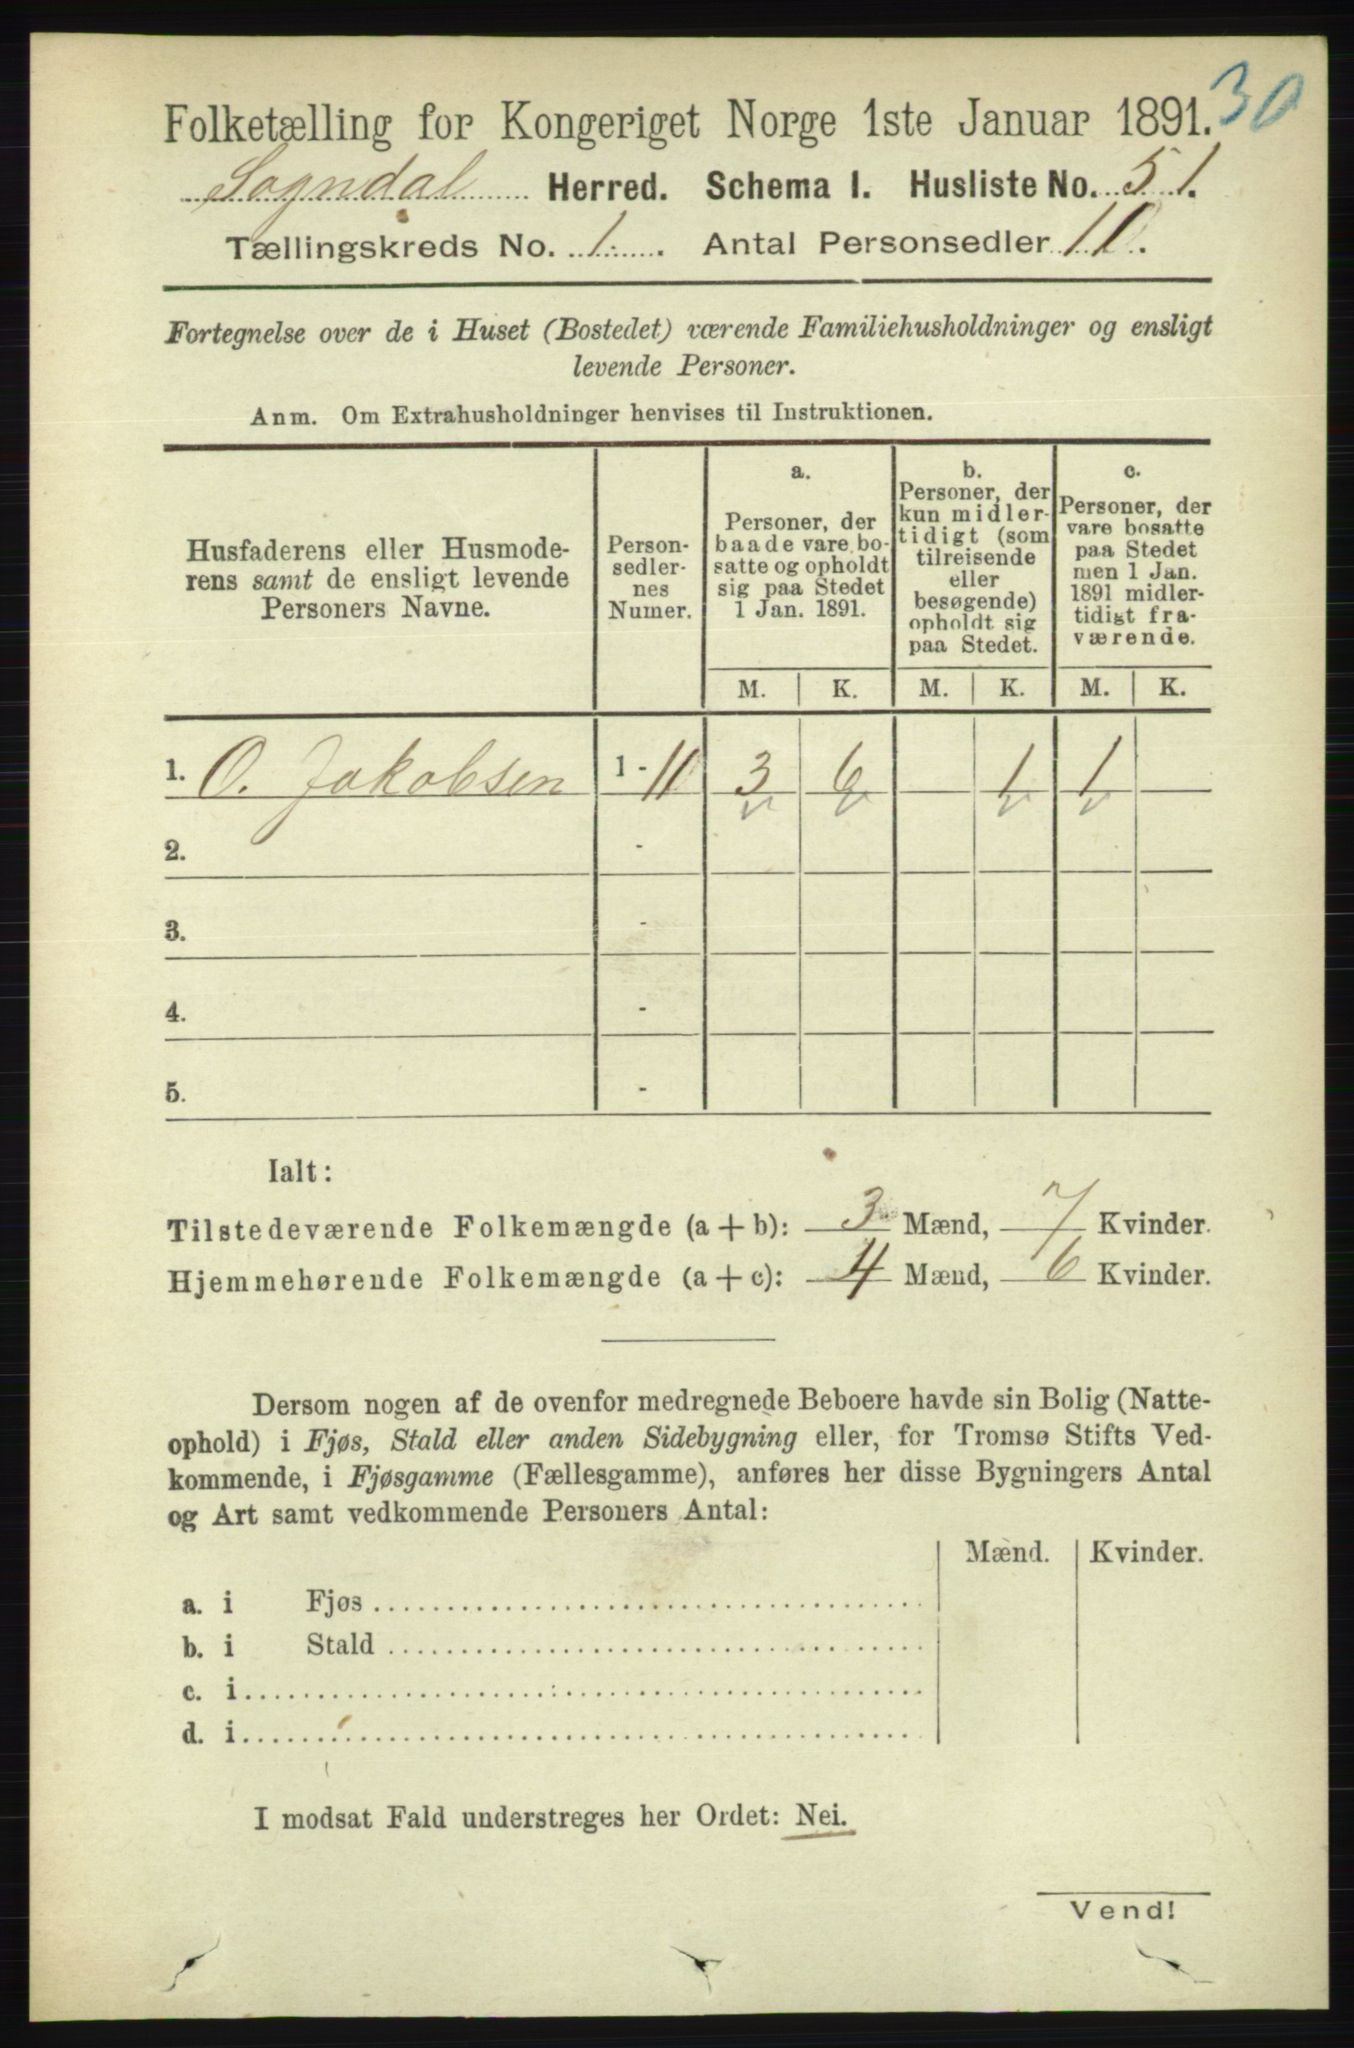 30
Folketælling for Kongeriget Norge 1ste Januar 1891.
Sogndal Herred. Schema I. Husliste No. 51.
Tællingskreds No. 1. Antal Personsedler 10.
Fortegnelse over de i Huset (Bostedet) værende Familiehusholdninger og ensligt
levende Personer.
Anm. Om Extrahusholdninger henvises til Instruktionen.
Husfaderens eller Husmode-
rens samt de ensligt levende
Personers Navne.
Person-
sedler-
nes
Numer.
a.
Personer, der
baade vare bo-
satte og opholdt
sig paa Stedet
1 Jan. 1891.
b.
Personer, der
kun midler-
tidigt (som
tilreisende
eller
besøgende)
opholdt sig
paa Stedet.
c.
Personer, der
vare bosatte
paa Stedet
men 1 Jan.
1891 midler-
tidigt fra-
værende.
M. K. M. K. M. K.
1. O. Jakobsen 1 - 11 3 6 1 1
2. -
3. -
4. -
5. -
Ialt:
Tilstedeværende Folkemængde (a + b): 3 Mænd, 7 Kvinder.
Hjemmehørende Folkemængde (a + c): 4 Mænd, 6 Kvinder.
Dersom nogen af de ovenfor medregnede Beboere havde sin Bolig (Natte-
ophold) i Fjøs, Stald eller anden Sidebygning eller, for Tromsø Stifts Ved-
kommende, i Fjøsgamme (Fællesgamme), anføres her disse Bygningers Antal
og Art samt vedkommende Personers Antal:
Mænd. Kvinder.
a. i Fjøs
b. i Stald
c. i
d. i
I modsat Fald understreges her Ordet: Nei.
Vend!